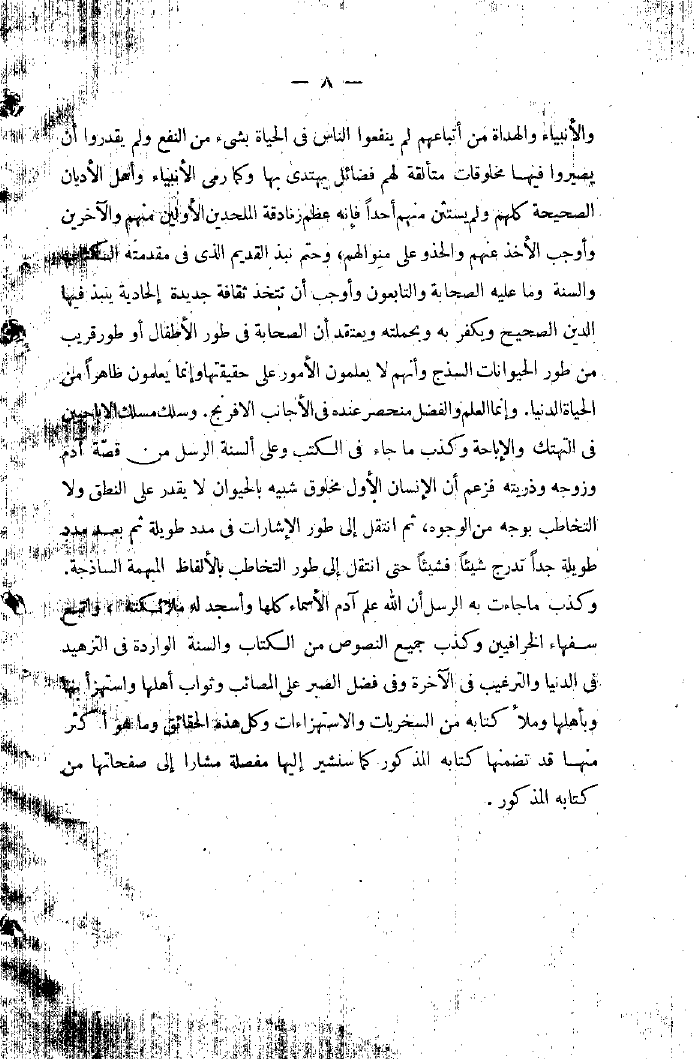 — ٨ —
والأنبياء والهداة من أتباعهم لم ينفعوا الناس فى الحياة بشىء من النفع ولم يقدروا أن
يصيروا فيهـا مخلوقات متألقة لهم فضائل يهتدى بها وكما رمى الأنبياء وأهل الأديان
الصحيحة كلهم ولم يستثن منهم أحداً فإنه عظم زنادقة الملحدين الأولين منهم والآخرين
وأوجب الأخذ عنهم والحذو على منوالهم، وحتم نبذ القديم الذى فى مقدمته الكتاب
والسنة وما عليه الصحابة والتابعون وأوجب أن تتخذ ثقافة جديدة إلحادية ينبذ فيها
الدين الصحيح ويكفر به وبحملته ويعتقد أن الصحابة فى طور الأطفال أو طور قريب
من طور الحيوانات السذج وأنهم لا يعلمون الأمور على حقيقتها وإنما يعلمون ظاهراً من
الحياة الدنيا. وإنما العلم والفضل منحصر عنده فى الأجانب الافرنج. وسلك مسلك الاباحيين
فى التهتك والإباحة وكذب ما جاء فى الكتب وعلى ألسنة الرسل من قصّة آدم
وزوجه وذريته فزعم أن الإنسان الأول مخلوق شبيه بالحيوان لا يقدر على النطق ولا
التخاطب بوجه من الوجوه، ثم انتقل إلى طور الإشارات فى مدد طويلة ثم بعـد مدد
طويلة جداً تدرج شيئاً فشيئاً حتى انتقل إلى طور التخاطب بالألفاظ المبهمة الساذجة.
وكذب ماجاءت به الرسل أن الله علم آدم الأسماء كلها وأسجد له ملائكته ، واتبع
سـفهاء الخرافيين وكذب جميع النصوص من الكتاب والسنة الواردة فى الترهيد
فى الدنيا والترغيب فى الآخرة وفى فضل الصبر على المصائب وثواب أهلها واستهزأ بها
وبأهلها وملأ كتابه من السخريات والاستهزاءات وكل هذه الحقائق وما هو أكثر
منهـا قد تضمنها كتابه المذكور كما سنشير إليها مفصلة مشارا إلى صفحاتها من
كتابه المذكور .